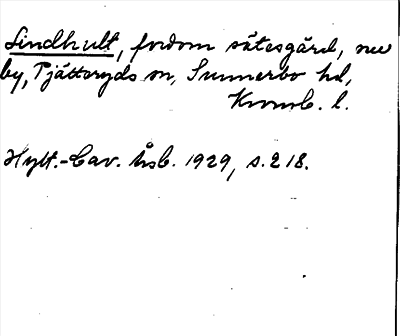 Lindhult, fordom sätesgård, nu
by, Pjätteryds sn, Sunnerbo hd,
Kronob. l.
Hylt.-Cav. Årsb. 1929, s. 218.